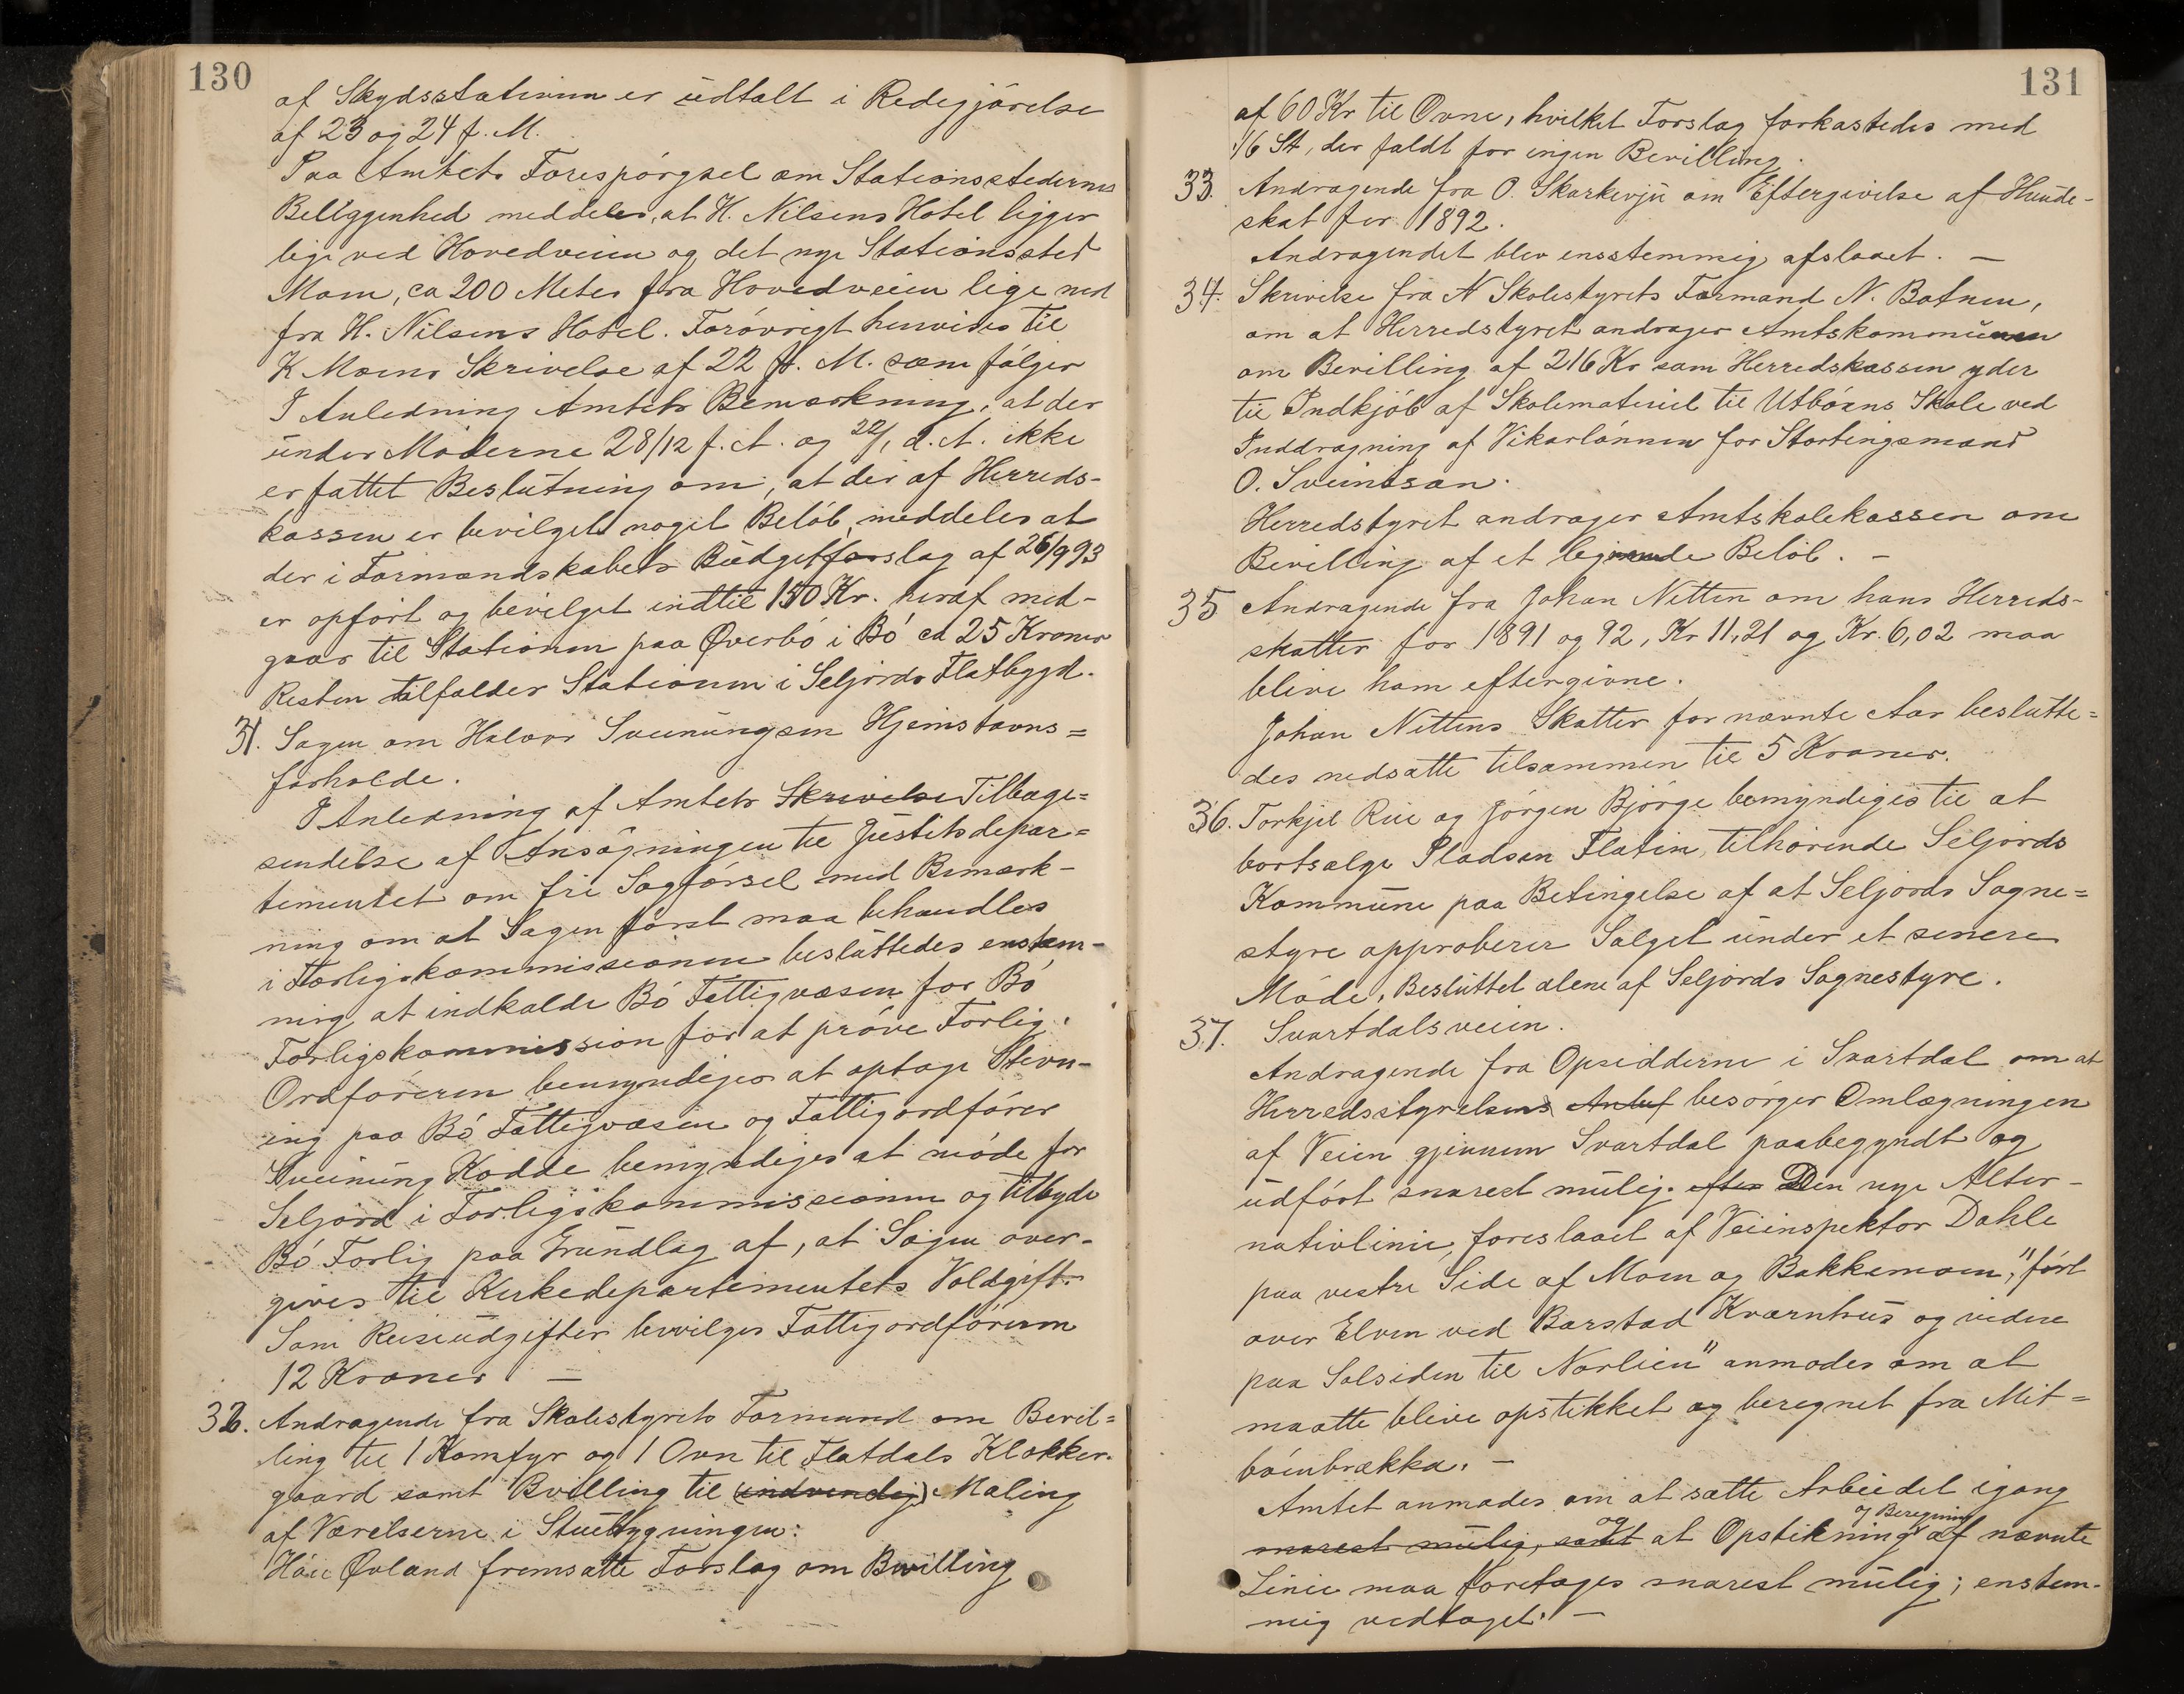 130
af Skydsstationen er udtalt i Redegjörelse
af 23 og 24 f. M.
Paa Amtets Forespörgsel om Stationsstedernes
Beliggenhed meddeles, at H. Nilsens Hotel ligger
lige ved Hovedveien og det nye Stationssted
Moen, ca 200 Meter fra Hovedveien lige ned
fra H. Nilsens Hotel. Forövrigt henvises til
K Moens Skrivelse af 22 f. M. som fölger
I Anledning Amtets Bemærkning, at der
under Möderne 28/12 f. A. og 22/1 d. A. ikke
er fattet Beslutning om, at der af Herreds-
kassen er bevilget noget Belöb, meddeles at
der i Formandskabets Budgetforslag af 26/9 93
er opfört og bevilget indtil 150 Kr. heraf med-
gaar til Stationen paa Øverbö i Bö ca 25 Kroner
Resten tilfalder Stationen i Seljords Flatbygd.
31. Sagen om Halvor Sveinungsen Hjemstavns=
forholde.
I Anledning af Amtets Skrivelse Tilbage=
sendelse af Ansögningen til Justitsdepar=
tementet om fri Sagförsel med Bemærk-
ning om at Sagen först maa behandles
i Forligskommissionen besluttedes enstem-
mig at indkalde Bö Fattigvæsen for Bö
Forligskommission for at pröve Forlig.
Ordföreren bemyndiges at optage Stevn-
ing paa Bö Fattigvæsen og Fattigordförer
Sveinung Kodde bemyndiges at möde for
Seljord i Forligskommissionen og tilbyde
Bö Forlig paa Grundlag af, at Sagen over-
gives til Kirkedepartementets Voldgift.
Som Reiseudgifter bevilges Fattigordföreren
12 Kroner —
32. Andragende fra Skolestyrets Formand om Bevil=
ling til 1 Komfyr og 1 Ovn til Flatdals Klokker-
gaard samt Bevilling til (indvendig) Maling
af Værelserne i Stuebygningen:
Håie Øvland fremsatte Forslag om Bevilling
131
af 60 Kr til Ovne, hvilket Forslag forkastedes med
16 St, der faldt for ingen Bevilling.
33. Andragende fra O. Skarkevju om Eftergivelse af Hunde-
skat for 1892.
Andragendet blev ensstemmig afslaaet. —
34. Skrivelse fra N Skolestyrets Formand N. Botnen,
om at Herredstyret andrager Amtskommunen
om Bevilling af 216 Kr som Herredskassen yder
til Indkjöb af Skolemateriel til Utböens Skole ved
Inddragning af Vikarlönnen for Stortingsmand
O. Sveintsen.
Herredstyret andrager Amtskolekassen om
Bevilling af et lignende Belöb. —
35 Andragende fra Johan Nitten om hans Herreds-
skatter for 1891 og 92, Kr 11,21 og Kr. 6,02 maa
blive ham eftergivne.
Johan Nittens Skatter for nævnte Aar beslutte=
des nedsatte tilsammen til 5 Kroner.
36. Torkjel Rue og Jörgen Björge bemyndiges til at
bortsælge Pladsen Flatin, tilhörende Seljords
Kommune paa Betingelse af at Seljords Sogne=
styre approberer Salget under et senere
Möde. Besluttet alene af Seljords Sognestyre.
37. Svartdalsveien.
Andragende fra Opsidderne i Svartdal om at
Herredsstyrelsens besörger Omlægningen
af Veien gjennem Svartdal paabegyndt og
udfört snarest mulig. efter Den nye Alter-
nativlinie, foreslaaet af Veiinspektör Dahle
paa vestre Side af Moen og Bakkemoen, "fört
over Elven ved Barstad Kværnhus og videre
paa Solsiden til Norlien" anmodes om at
maatte blive opstikket og beregnet fra Mit=
böenbrækka. —
Amtet anmodes om at sætte Arbeidet igang
snarest mulig, samt og at Opstikning og Beregning af nævnte
Linie maa foretages snarest mulig; enstem-
mig vedtaget. —